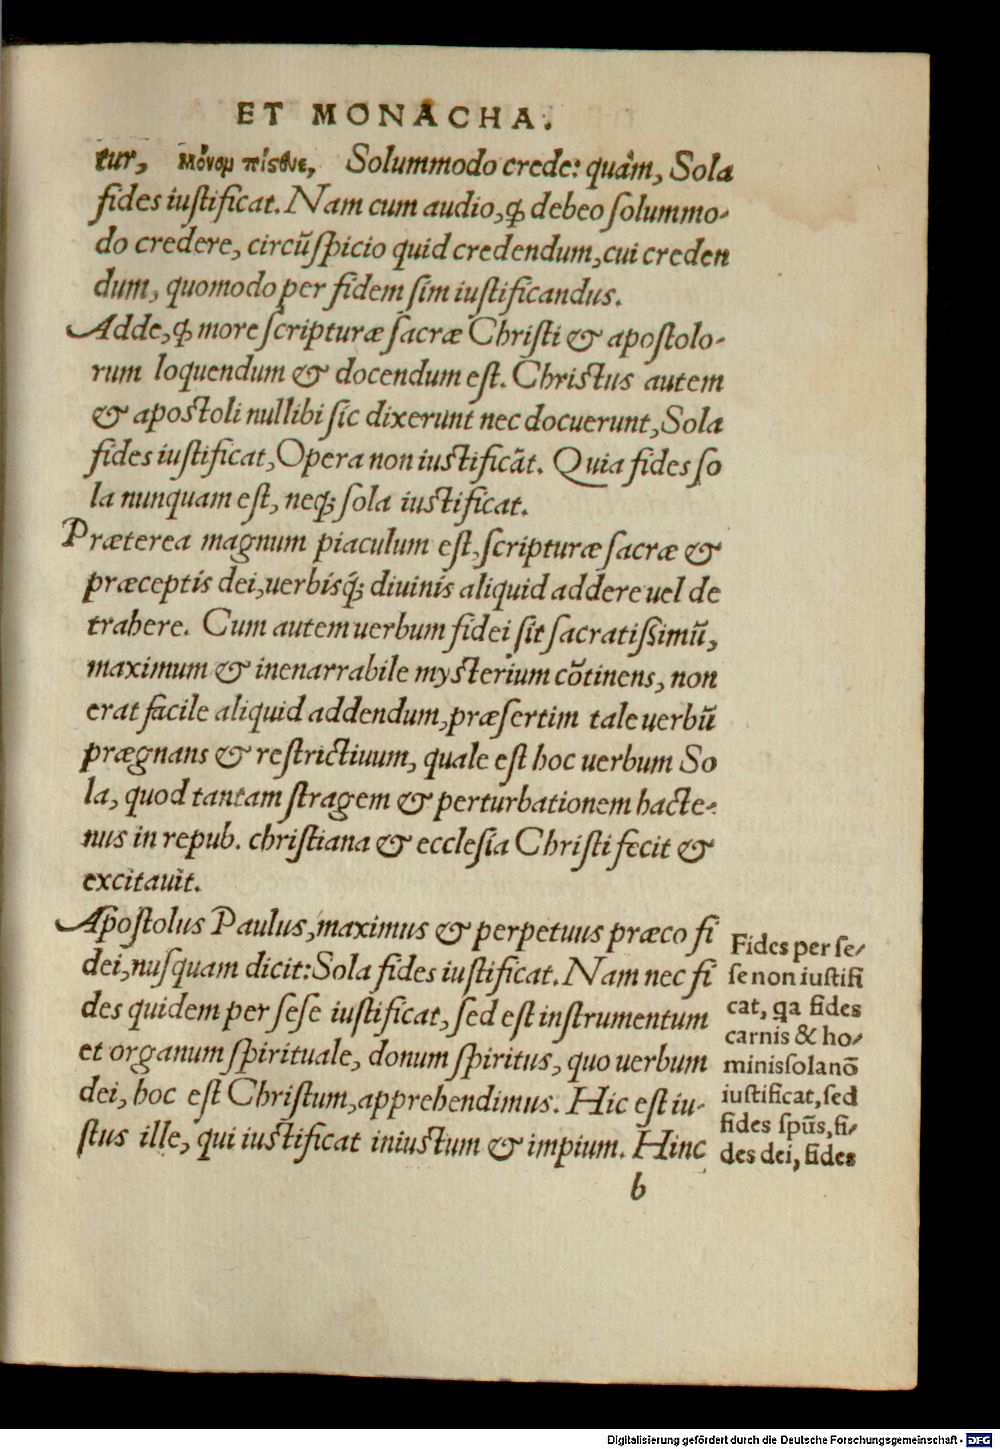 ET MONACHA.
tur, Μόνον πίστευε, Solummodo crede: quàm, Sola
fides iuſtificat. Nam cum audio, ꝙ debeo ſolummo-
do credere, circũſpicio quid credendum, cui creden
dum, quomodo per fidem ſim iuſtificandus.
Adde, ꝙ more ſcripturæ ſacræ Chriſti & apoſtolo-
rum loquendum & docendum eſt. Chriſtus autem
& apoſtoli nullibi ſic dixerunt nec docuerunt, Sola
fides iuſtificat, Opera non iuſtificãt. Quia fides ſo
la nunquam eſt, neqꝫ ſola iuſtificat.
Præterea magnum piaculum eſt, ſcripturæ ſacræ &
præceptis dei, uerbisq́ꝫ diuinis aliquid addere uel de
trahere. Cum autem uerbum fidei ſit ſacratiſsimũ,
maximum & inenarrabile myſterium cõtinens, non
erat facile aliquid addendum, præſertim tale uerbũ
prægnans & reſtrictiuum, quale eſt hoc uerbum So
la, quod tantam ſtragem & perturbationem hacte-
nus in repub. chriſtiana & eccleſia Chriſti fecit &
excitauit.
Apoſtolus Paulus, maximus & perpetuus præco fi
dei, nuſquam dicit: Sola fides iuſtificat. Nam nec fi
des quidem per ſeſe iuſtificat, ſed eſt inſtrumentum
et organum ſpirituale, donum ſpiritus, quo uerbum
dei, hoc eſt Chriſtum, apprehendimus. Hic eſt iu-
ſtus ille, qui iuſtificat iniuſtum & impium. Hinc
Fides per ſe-
ſe non iuſtifi
cat, ꝗa fides
carnis & ho-
minis ſola nõ
iuſtificat, ſed
fides ſpũs, fi-
des dei, fides
b
Digitalisierung gefördert durch die Deutsche Forschungsgemeinschaft - DFG